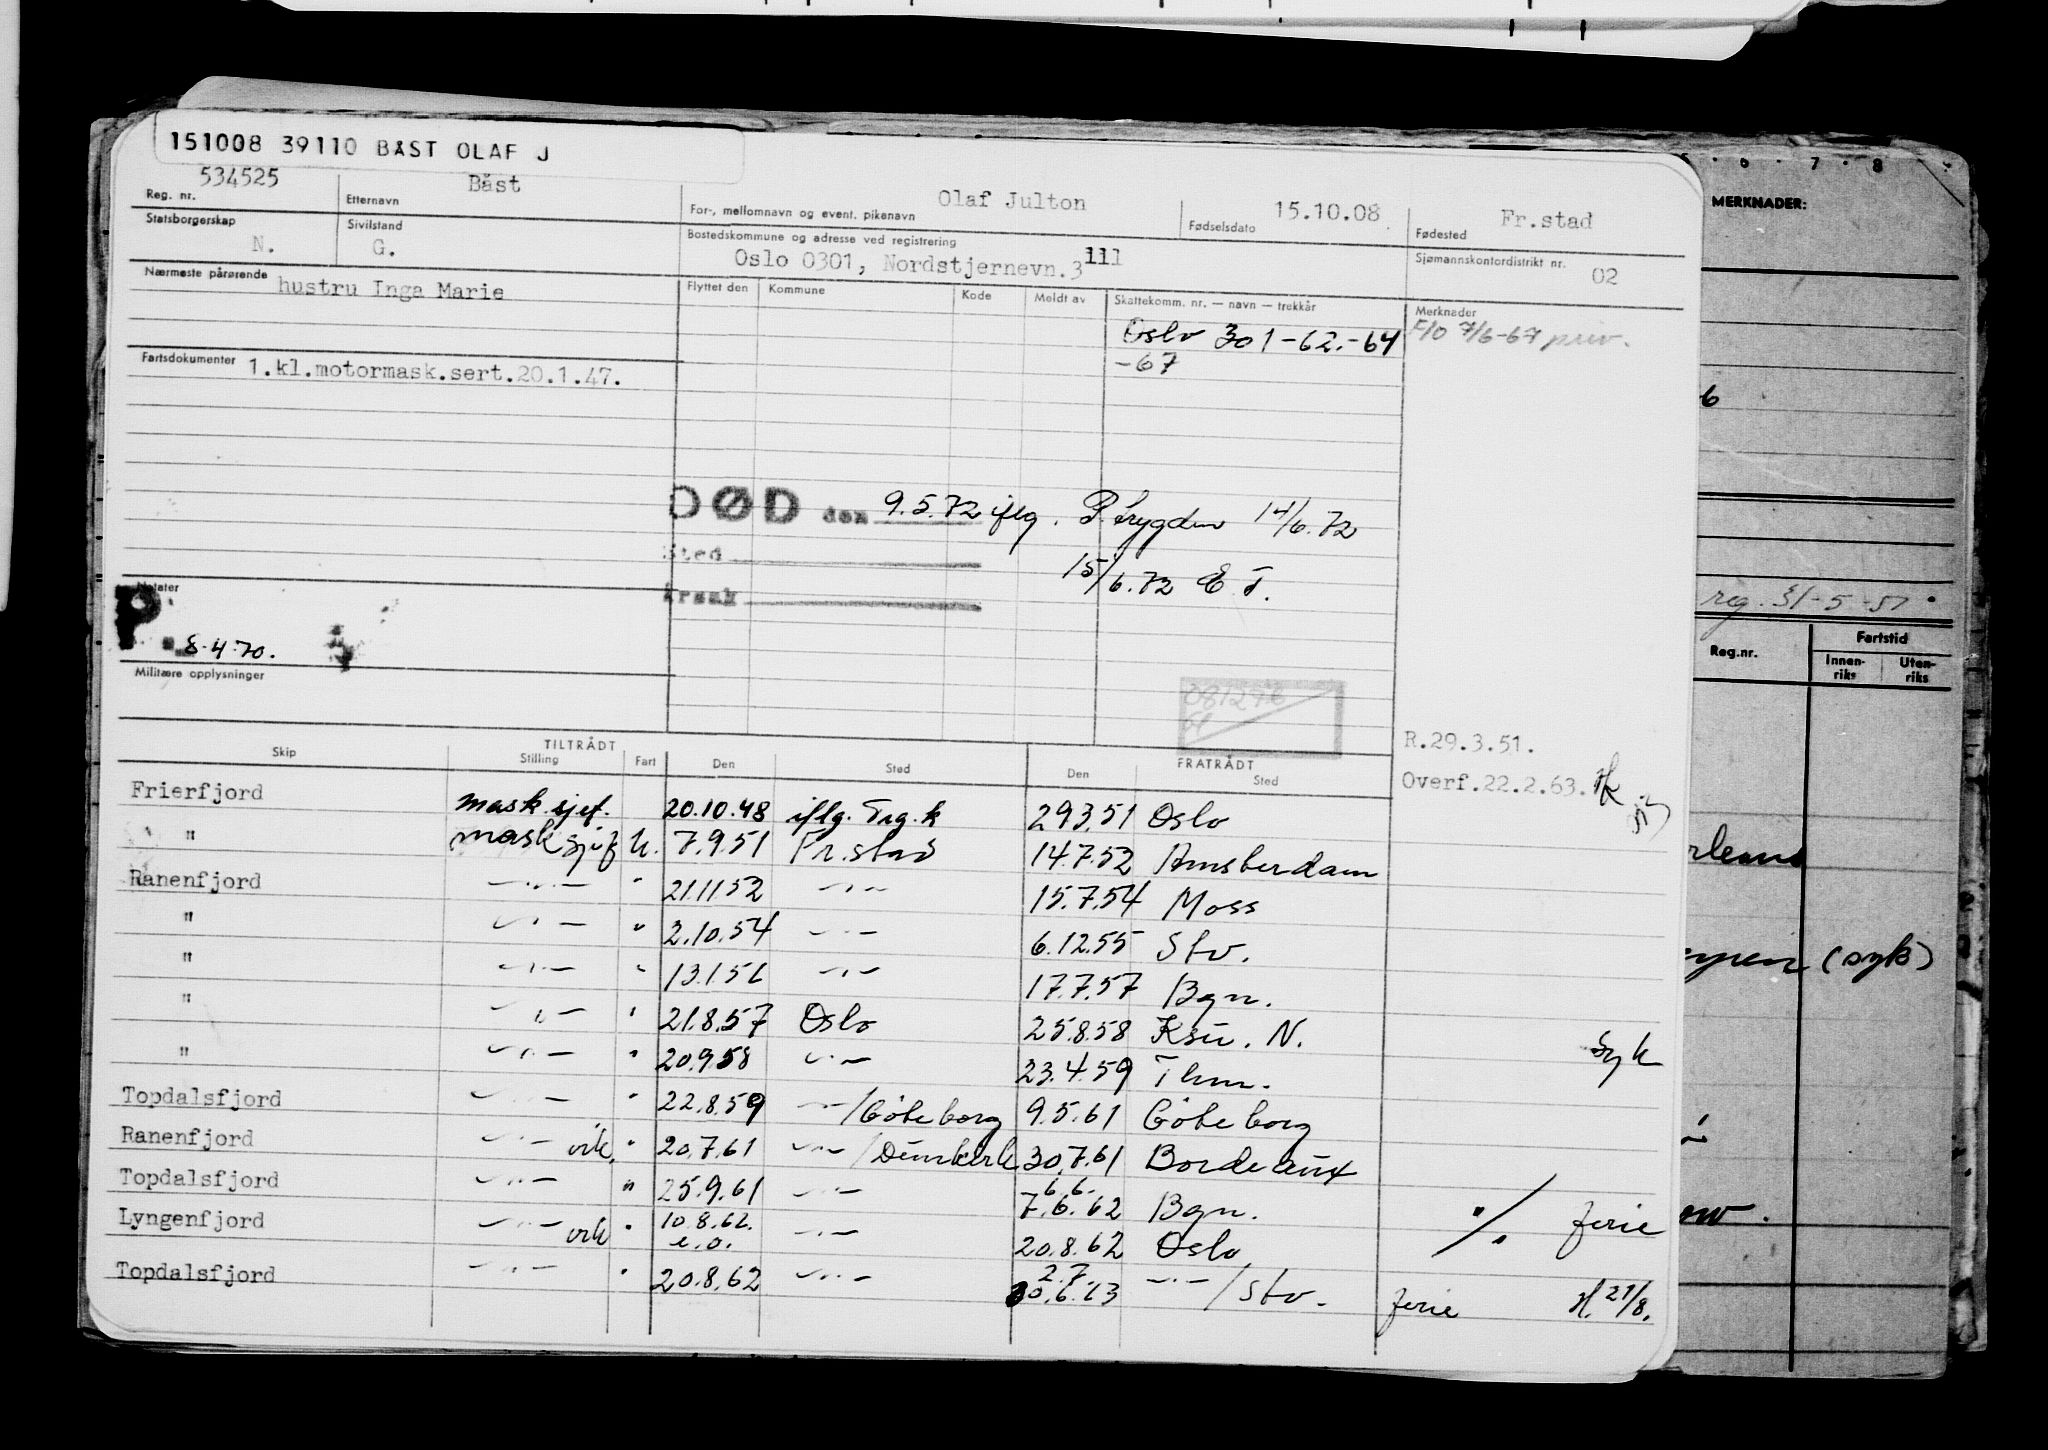 151008 39110 BÅST OLAF J
534525 Båst Olaf Julton 15.10.08 Fr.stad
Reg. nr. Etternavn For-, mellomnavn og event. pikenavn Fødselsdato Fødested
Statsborgerskap Sivilstand Bostedskommune og adresse ved registrering Sjømannskontordistrikt nr.
N. G. Oslo 0301, Nordstjernevn.3 111 02
Nærmeste pårørende hustru Inga Marie
Flyttet den Kommune Kode Meldt av Skattekomm. nr. — navn — trekkår Merknader
Oslo 301-62.-64 F/O 7/6-67 priv.
-67
Fartsdokumenter 1.kl.motormask.sert.20.1.47.
DØD den 9.5.72 iflg. P.trygden 14/6.72
Sted
15/6.72 E.T.
Årsak
Notater
P
8.4.70.
Militære opplysninger
R.29.3.51.
Overf.22.2.63.
TILTRÅDT FRATRÅDT
Skip Stilling Fart Den Sted Den Sted
Frierfjord mask.sjef. 20.10.48 iflg. Trg.k 29.3.51 Oslo
" mask sjef U. 7.9.51 Fr.stad 14.7.52 Amsterdam
Ranenfjord —"— " 21.11.52 —"— 15.7.54 Moss
" —"— " 2.10.54 —"— 6.12.55 Stv.
" —"— " 13.1.56 —"— 17.7.57 Bgn.
" —"— " 21.8.57 Oslo 25.8.58 Ksu. N. Syk
" —"— " 20.9.58 —"— 23.4.59 Thm.
Topdalsfjord —"— " 22.8.59 —"—/Göteborg 9.5.61 Göteborg
Ranenfjord —"— vik. " 20.7.61 —"—/Dunkerk 30.7.61 Bordeaux
Topdalsfjord —"— " 25.9.61 —"— 6.6. 7.6.62 Bgn. % ferie
Lyngenfjord —"— vik " 10.8.62. e.o. —"— 20.8.62 Oslo
Topdalsfjord —"— " 20.8.62 —"— 2.7. 30.6.63 —"—/Stv. ferie H. 21/8.
6 7 8
MERKNADER:
6
reg. 31-5-51
Reg.nr. Fartstid
Innen-riks Uten-riks
(syk)